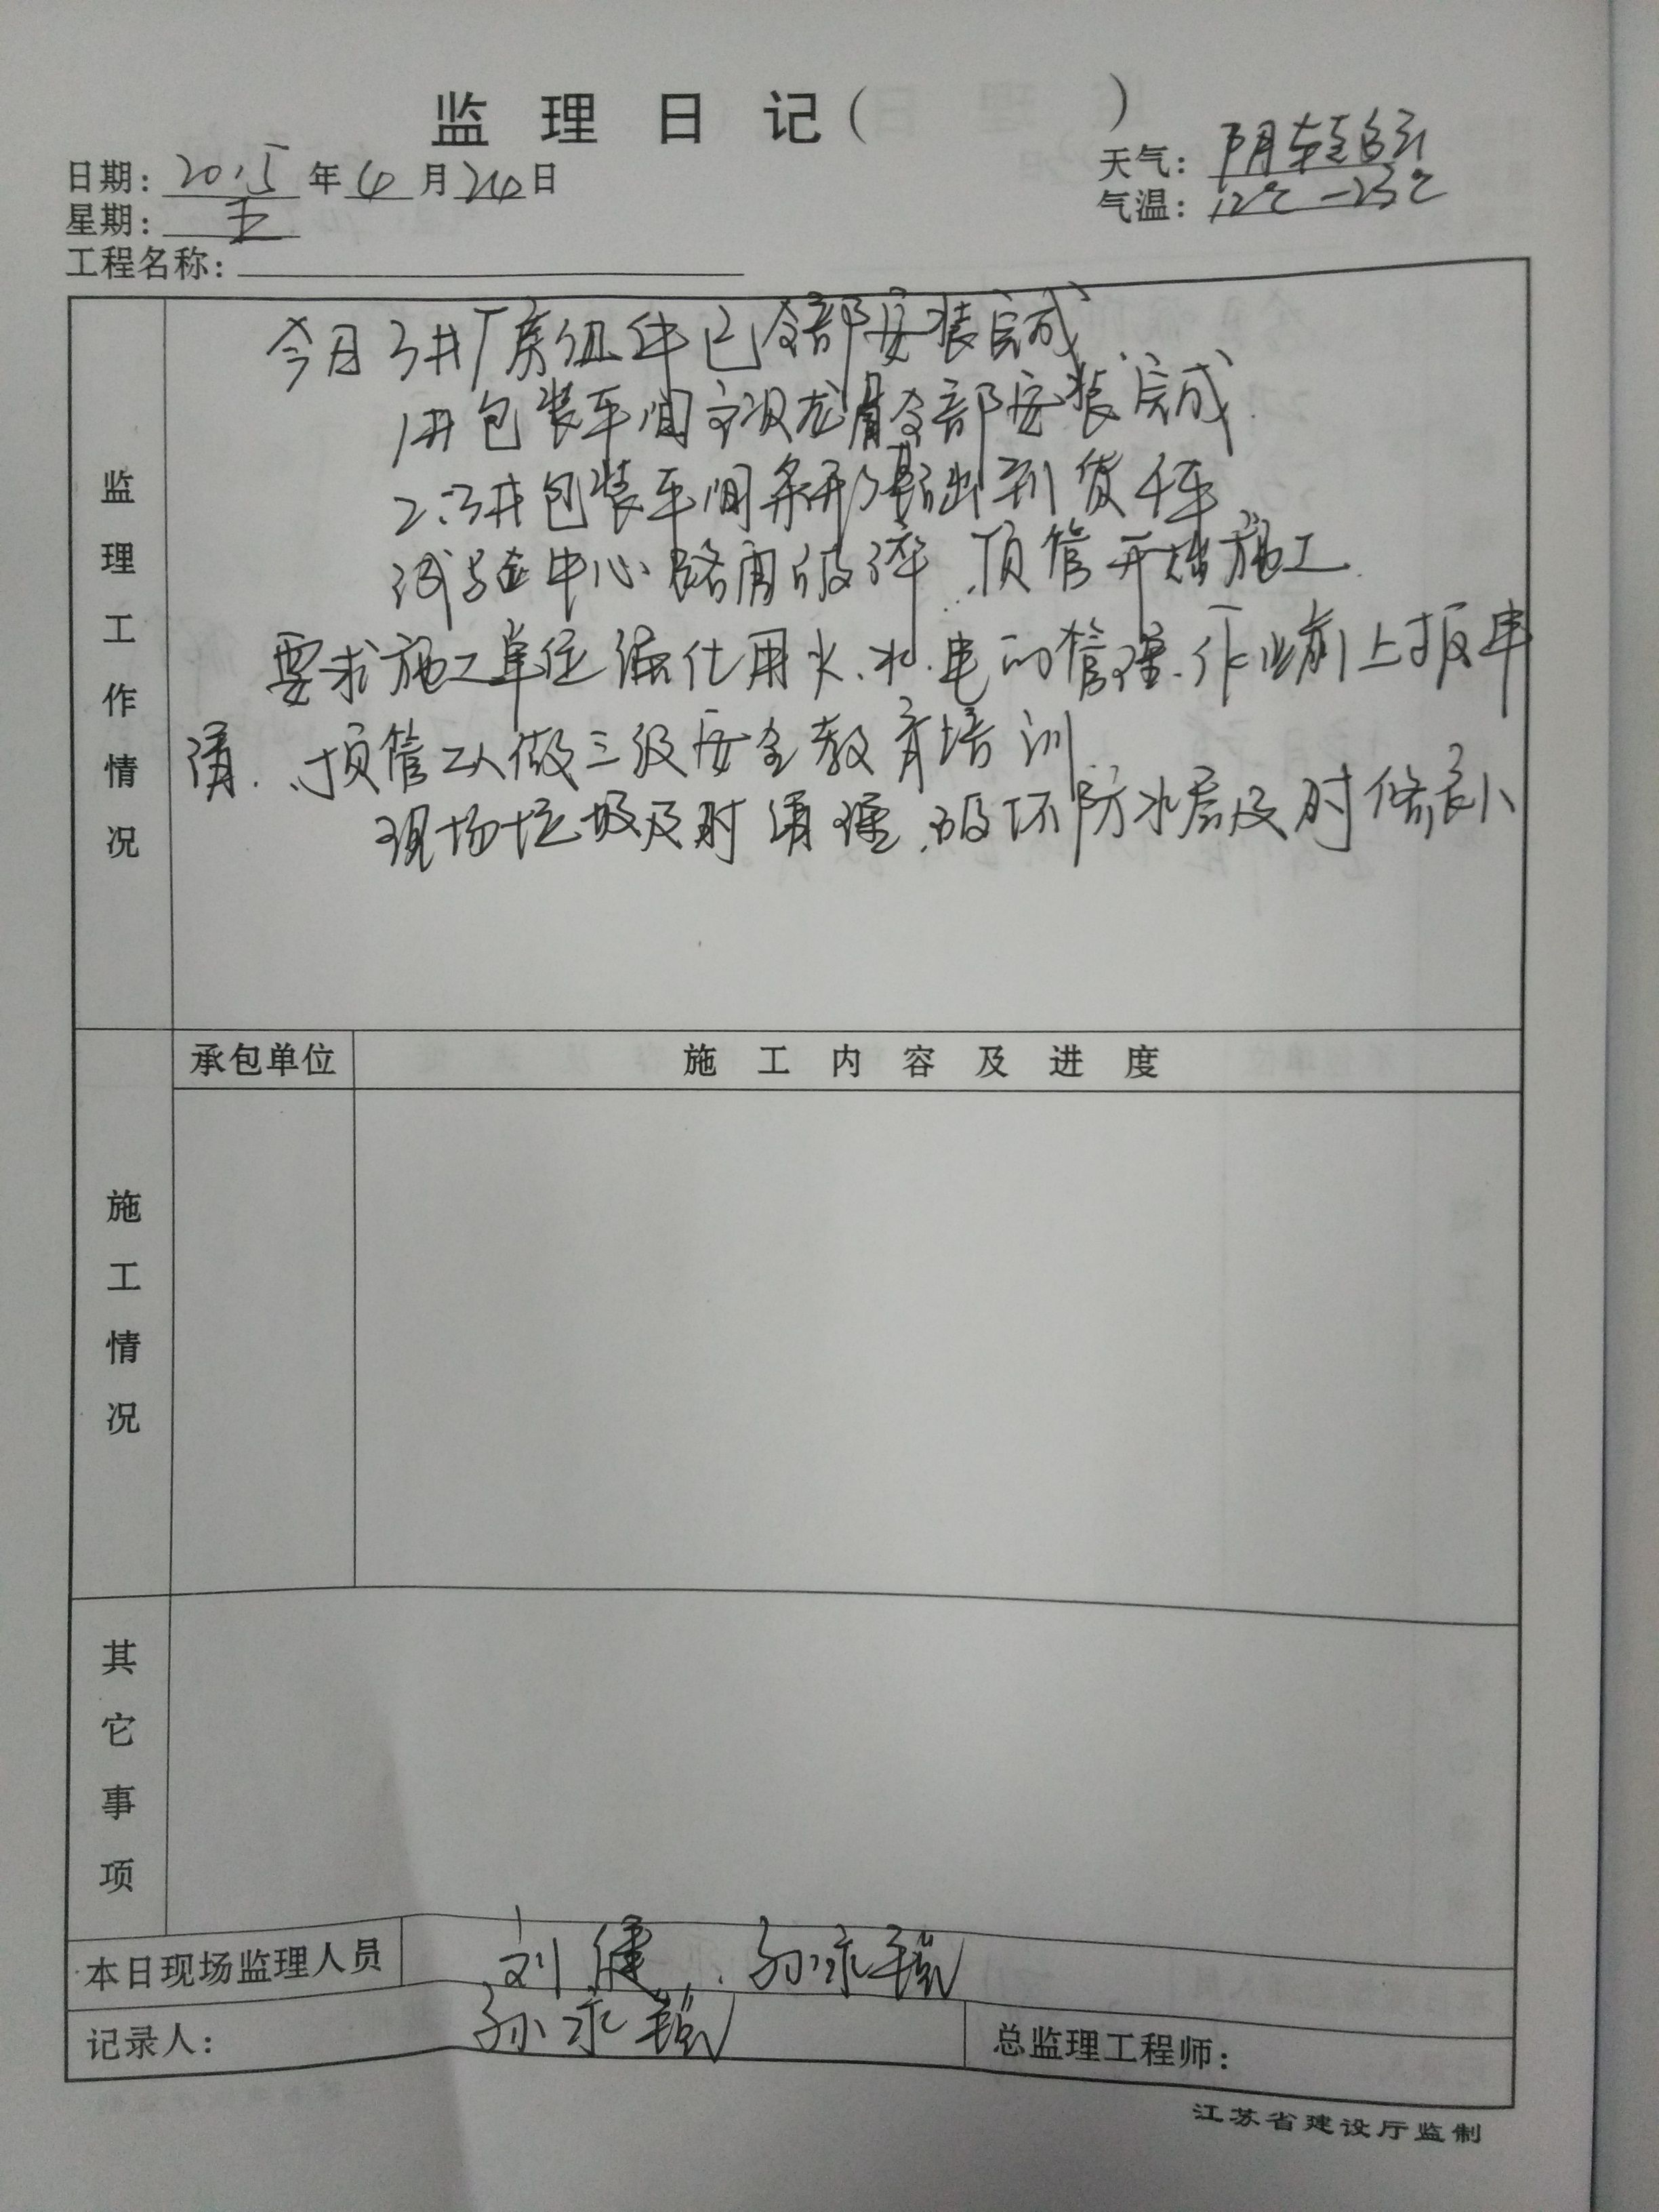 监理日记（ ）
日期：2015年4月24日
天气：阴转多云
星期：五
气温：12℃-23℃
工程名称：
监理工作情况
今日3#厂房组件已全部安装完成
1#包装车间主次龙骨全部安装完成
2.3#包装车间条形 到货 车
试验中心路面破碎、顶管开始施工.
要求施工单位强化用火、水、电的管理、作业前上报申
请、顶管工人做三级安全教育培训
现场垃圾及时清理、破坏防水层及时修补
施工情况
承包单位 施工内容及进度
其它事项
本日现场监理人员 刘健、孙永
记录人：孙永
总监理工程师：
江苏省建设厅监制